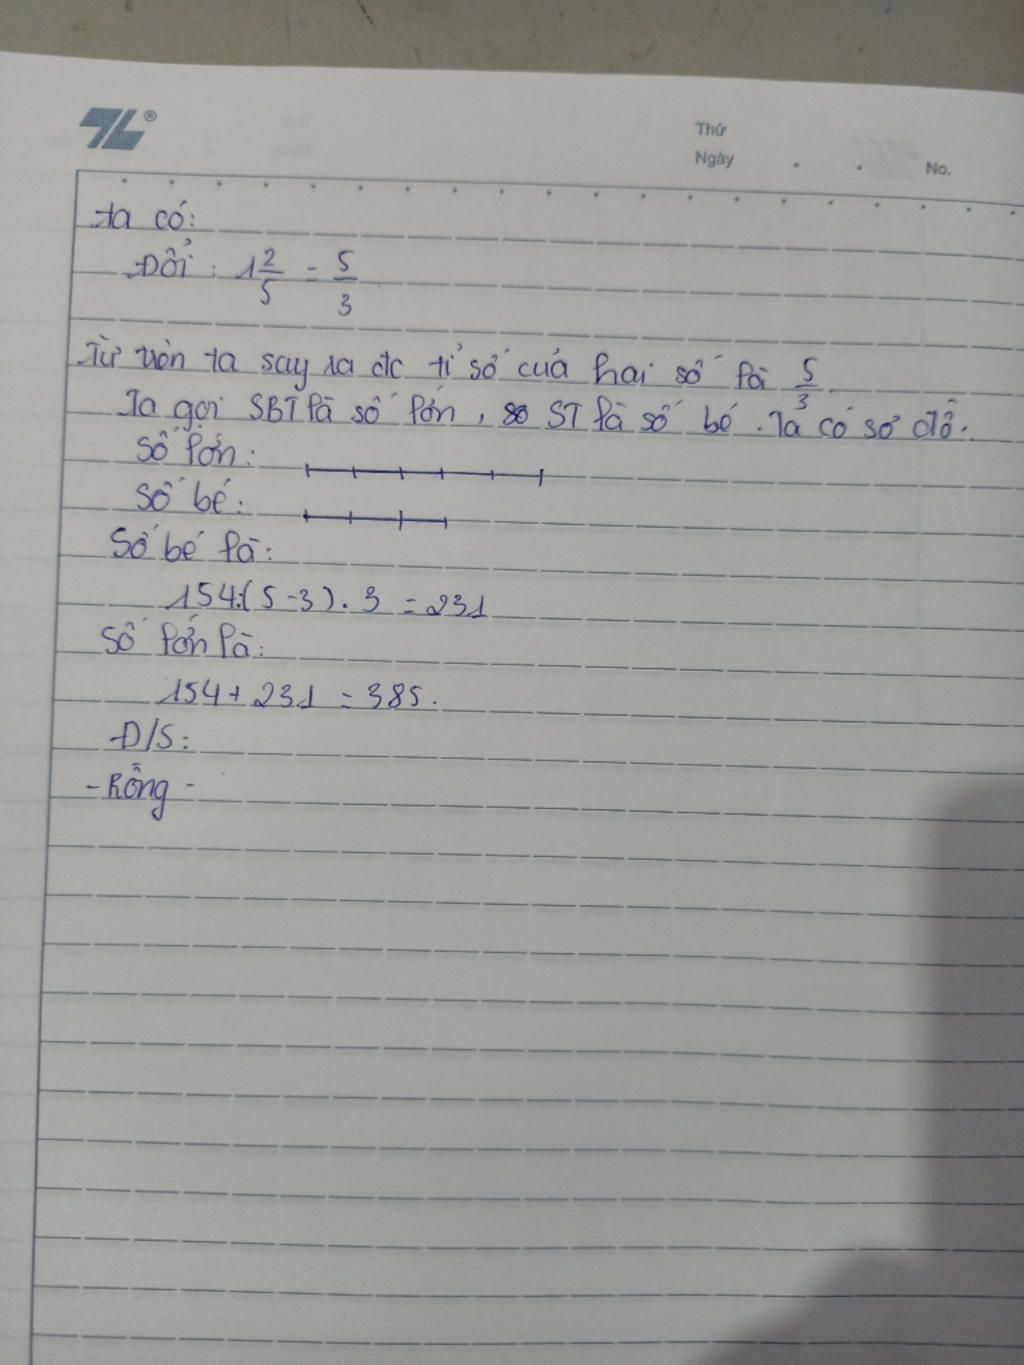 TL®
Thứ
Ngày . . No.
ta có:
Đổi : 1 2/5 = 5/3
Từ trên ta say ra đc tỉ số của hai số là 5/3
Ta gọi SBT là số lớn, ST là số bé. Ta có sơ đồ.
Số lớn:
Số bé:
Số bé là:
154:(5-3).3 = 231
Số lớn là:
154+231 = 385.
Đ/S:
-Rồng-